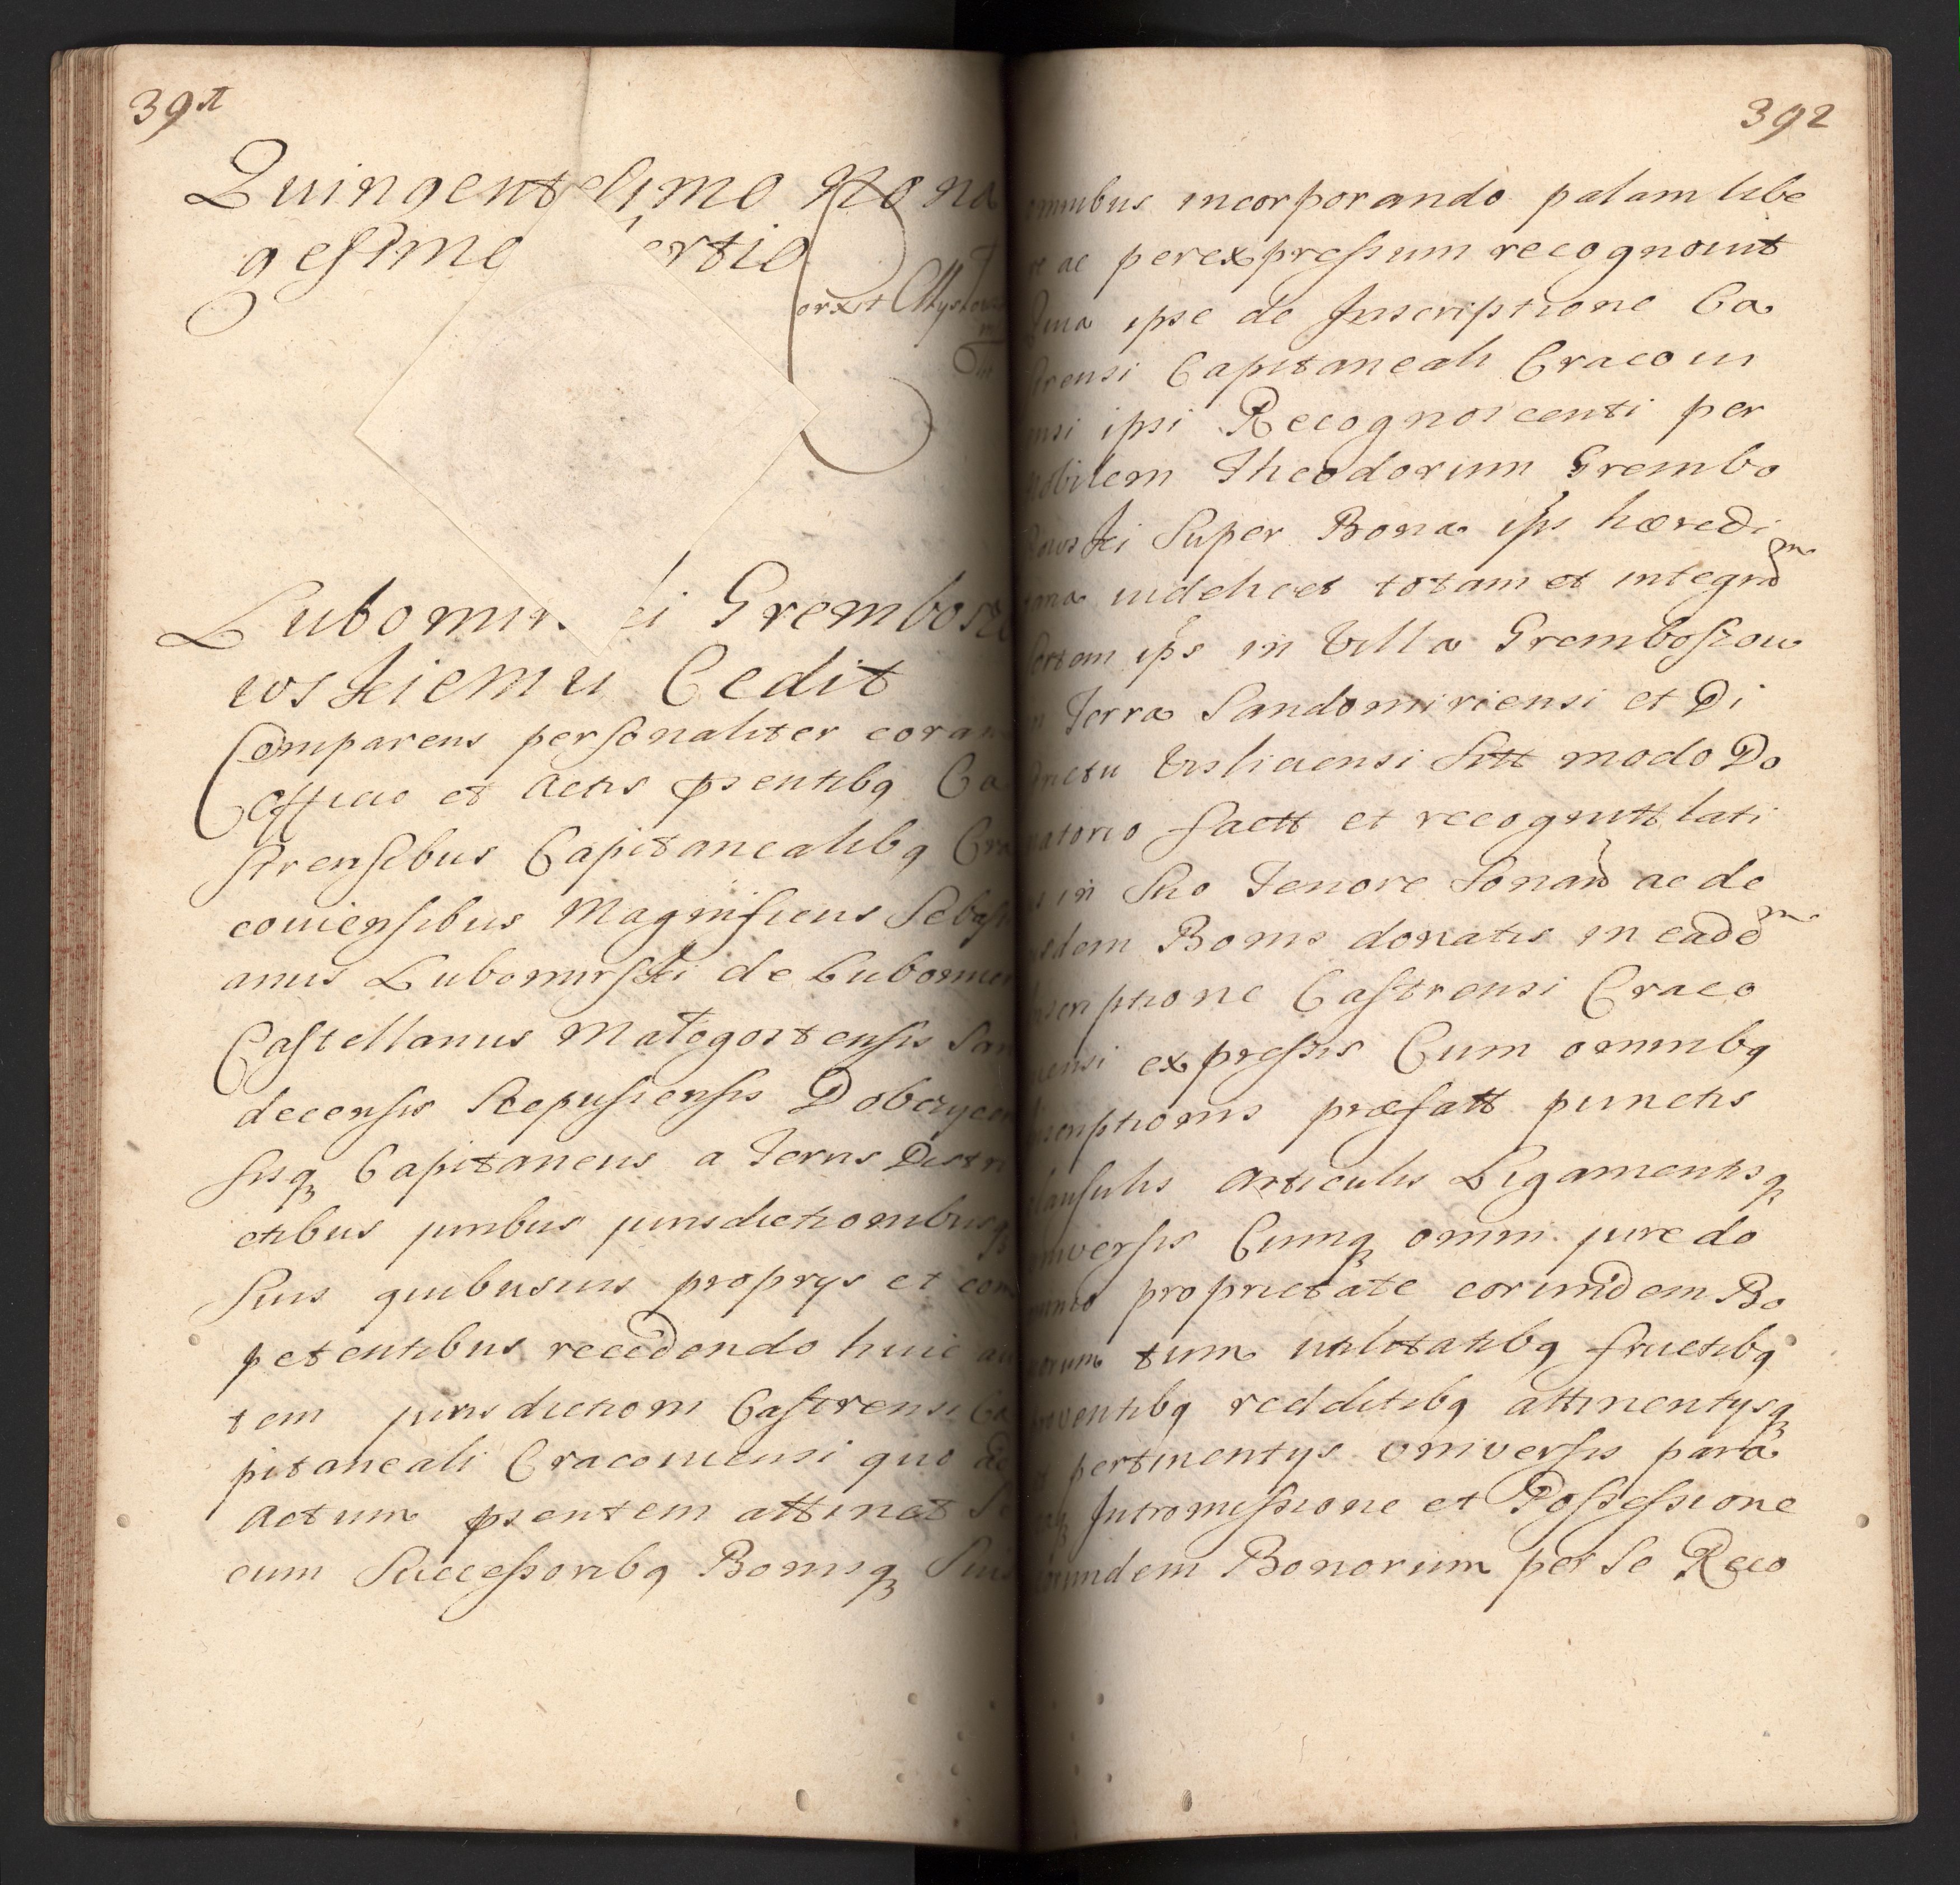 391
Quingentesimo Nona
gesimo ertio
orxit
Lubomir ki Grembosz
wskiemu Cedit
Comparens personaliter coram
Officio et Actis psentibq Ca
strensibus Capitanealibq Cra
coviensibus Magnificus Sebasti
anus Lubomirski de Lubomier
Castellanus Małogostensis San
decensis Scepusiensis Dobczycen
sisq Capitaneus a Terris Distri
ctibus juribus jurisdictionibusq
Suis quibusuis proprys et com
petentibus recedendo huic au
tem jurisdictioni Castrensi Ca
pitaneali Cracouiensi quo ad
Actum psentem attinet Se
cum Successoribq Bonisq Suis
392
omnibus incorporando palam libe
re ac per expressum recognouit
Quia ipse de Inscriptione Ca
strensi Capitaneali Cracoui
ensi ipsi Recognoscenti per
Nobilem Theodorum Grembo
szowski Super Bona ips hæredi
tana uidelicet totam et integrãm
Sortem ips in Villa Gremboszow
in Terra Sandomiriensi et Di
strictu Visliciensi Sitt modo Do
natorio factt et recognitt lati
us in Suo Tenore Sonan ac de
ijsdem Bonis donatis in eadem
Inscriptione Castrensi Craco
uiensi expressis Cum omnibq
Inscriptionis præfatt punctis
clausulis Articulis Ligamentisq
universis Cumq omni jure do
minio proprietate eorundem Bo
norum tum utilitatibq fructibq
proventibq redditibq attinentysq
et pertinentys universis para
taq Intromissione et Possessione
eorundem Bonorum per Se Reco